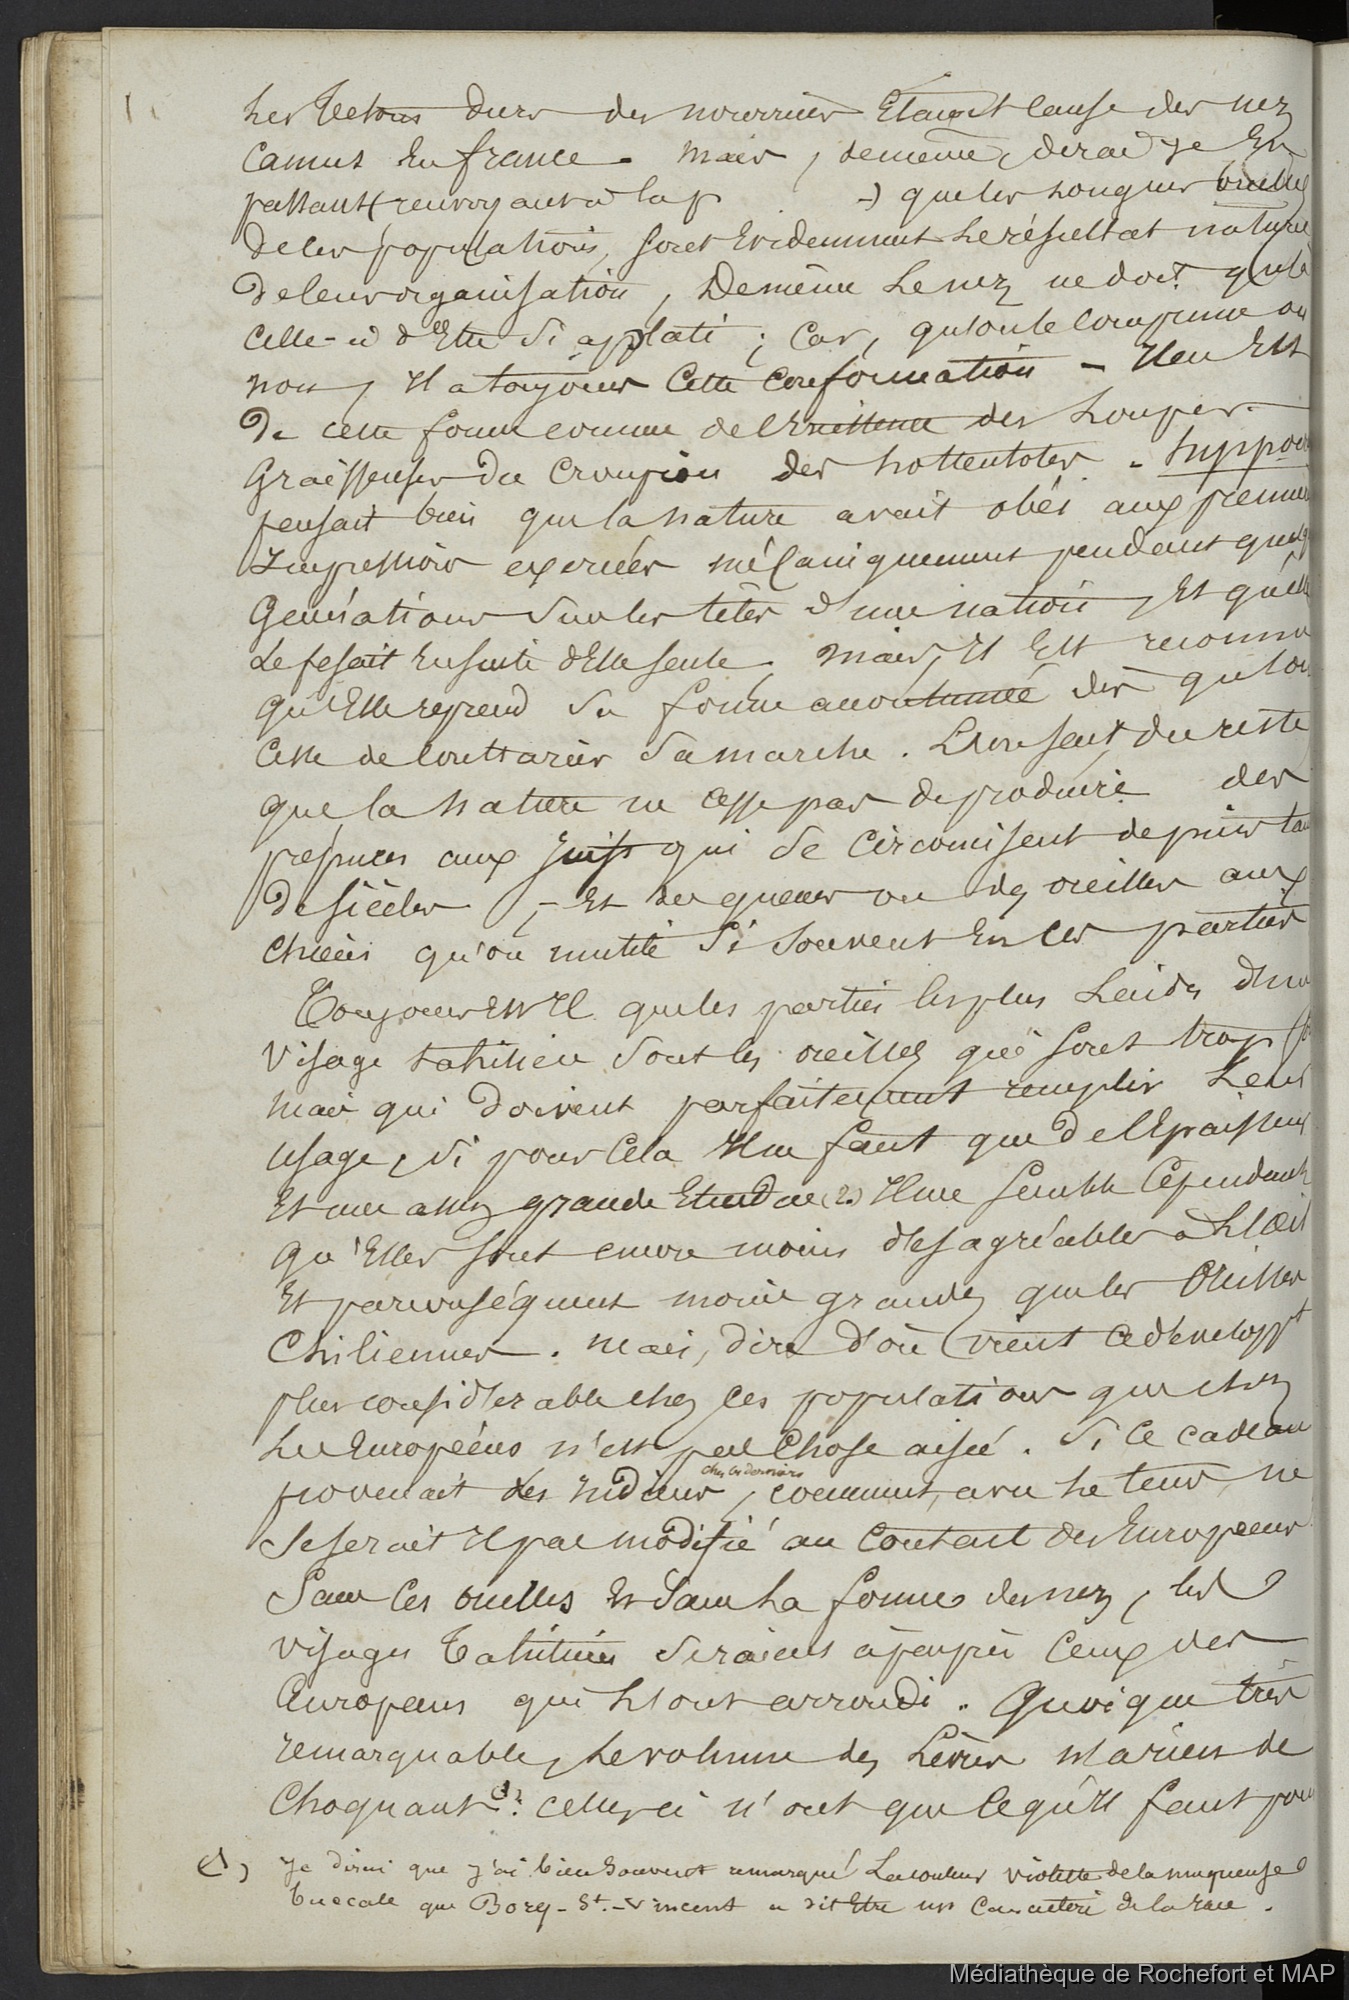 les tetons durs des nourrices Etaient cause des nez
camus En france. Mais, de même, dirai je En
passant (renvoyant à la p            -) que les longues oreilles
de ces populations, sont Evidemment le résultat naturel
de leur organisation, De même le nez ne doit qu'à
celle-ci d'Etre si applati ; Car, qu'on le comprime ou
non, Il a toujours Cette Conformation - Il en Est
De cette forme comme de l'Existence des loupes
graisseuses du Croupion des hottentotes. hyppocr
pensait bien que la nature avait obéi aux premieres
Impressions exercées mécaniquement pendant quelq
Générations sur les têtes d'une nation, Et qu'elle
le fesait Ensuite d'Elle seule. Mais, Il Est reconnu
qu'Elle reprend sa forme accoutumée dès qu'on
Cesse de contrarier sa marche. L'on sait, du reste
que la nature ne cesse pas de produire des
prépuces aux Juifs qui se circoncisent depuis tan
de siècles, - Et des queues ou des oreilles aux
chiens qu'on mutile si souvent En ces parties
Toujours Est Il que les parties les plus laides d'un
visage tahitien sont les oreilles qui sont trop
mais qui doivent parfaitement remplir leur
usage, si pour cela Il ne faut que de l'Epaisseur
Et une assez grande Etendue (2.) Il me semble Cependant
qu'Elles sont encore moins désagréables à L'Œil
Et par conséquent moins grandes que les Oreilles
Chiliennes. Mais, dire d'où vient ce développt
plus considérable chez ces populations que chez
les Européens n'est pas Chose aisée. Si ce cadeau
provenait des Indiens, comment, avec le tems, ne
chez ces derniers
se serait Il pas modifié au Contact des Européens
Sans Ces oreilles Et Sans La forme des nez, les
visages Tahitiens seraient à peu près Ceux des
Européens qui L'ont arrondi. Quoique très
remarquable, le volume des Lèvres n'a rien de
Choquant (1) : celles-ci n'ont que ce qu'Il faut pour
(1) Je dirai que j'ai bien Souvent remarqué La couleur violette de la muqueuse
buccale que Bory-St.-Vincent a dit Etre un Caractère de la race.
Médiathèque de Rochefort et MAP